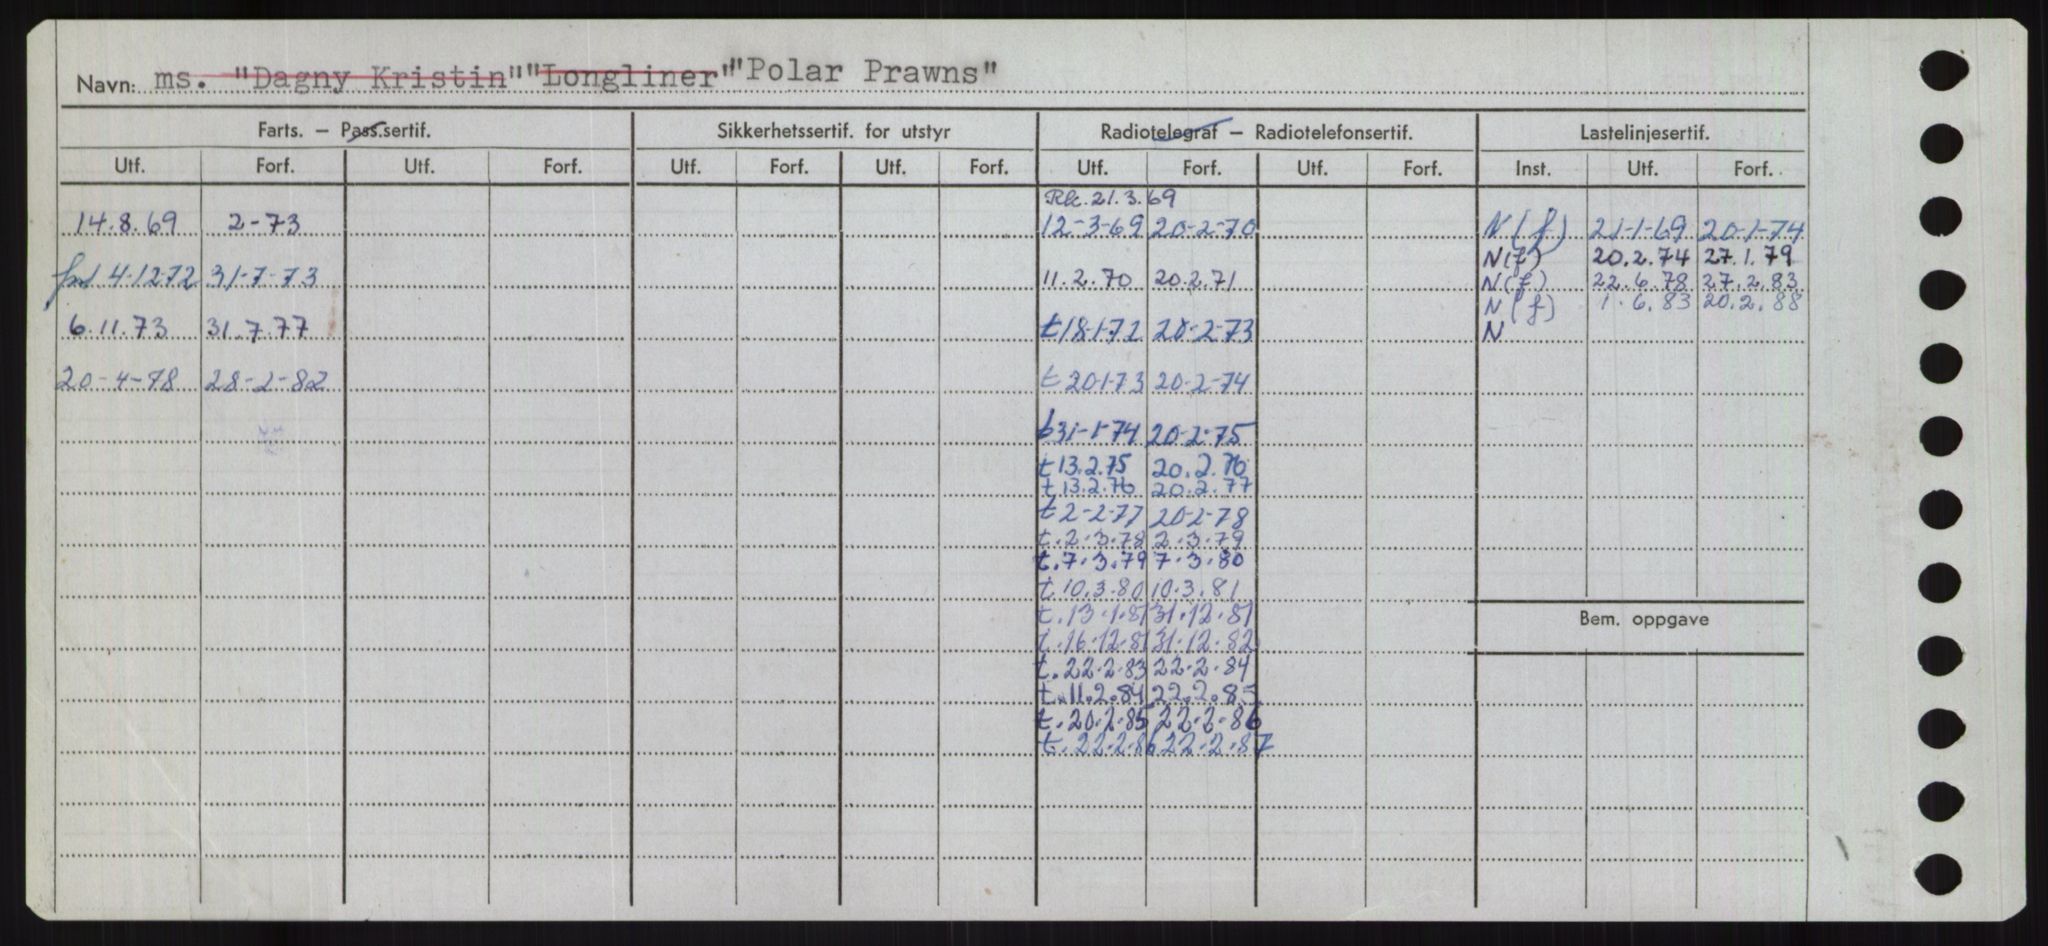 Navn: ms. "Dagny Kristin" "Longliner" "Polar Prawns"
Farts. – Pass.sertif. Sikkerhetssertif. for utstyr Radiotelegraf – Radiotelefonsertif. Lastelinjesertif.
Utf. Forf. Utf. Forf. Utf. Forf. Utf. Forf. Utf. Forf. Utf. Forf. Inst. Utf. Forf.
21.3.69
14.8.69 2-73 12-3-69 20-2-70 N(f) 21-1-69 20-1-74
N(f) 20.2.74 27.1.79
4-12-72 31-7-73 11.2.70 20.2.71 N(f) 22.6.78 27.2.83
N(f) 1.6.83 20.2.88
6.11.73 31.7.77 t18-1-72 20-2-73 N
20-4-78 28-2-82 t 20-1-73 20-2-74
31-1-74 20-2-75
t 13.2.75 20.2.76
t 13.2.76 20.2.77
t 2-2-77 20-2-78
t.2.3.78 2.3.79
t.7.3.79 7.3.80
t.10.3.80 10.3.81
t.13.1.81 31.12.81
t.16.12.81 31.12.82
t.22.2.83 22.2.84
t.11.2.84 22.2.85
t.20.2.85 22.2.86
t.22.2.86 22.2.87
Bem. oppgave